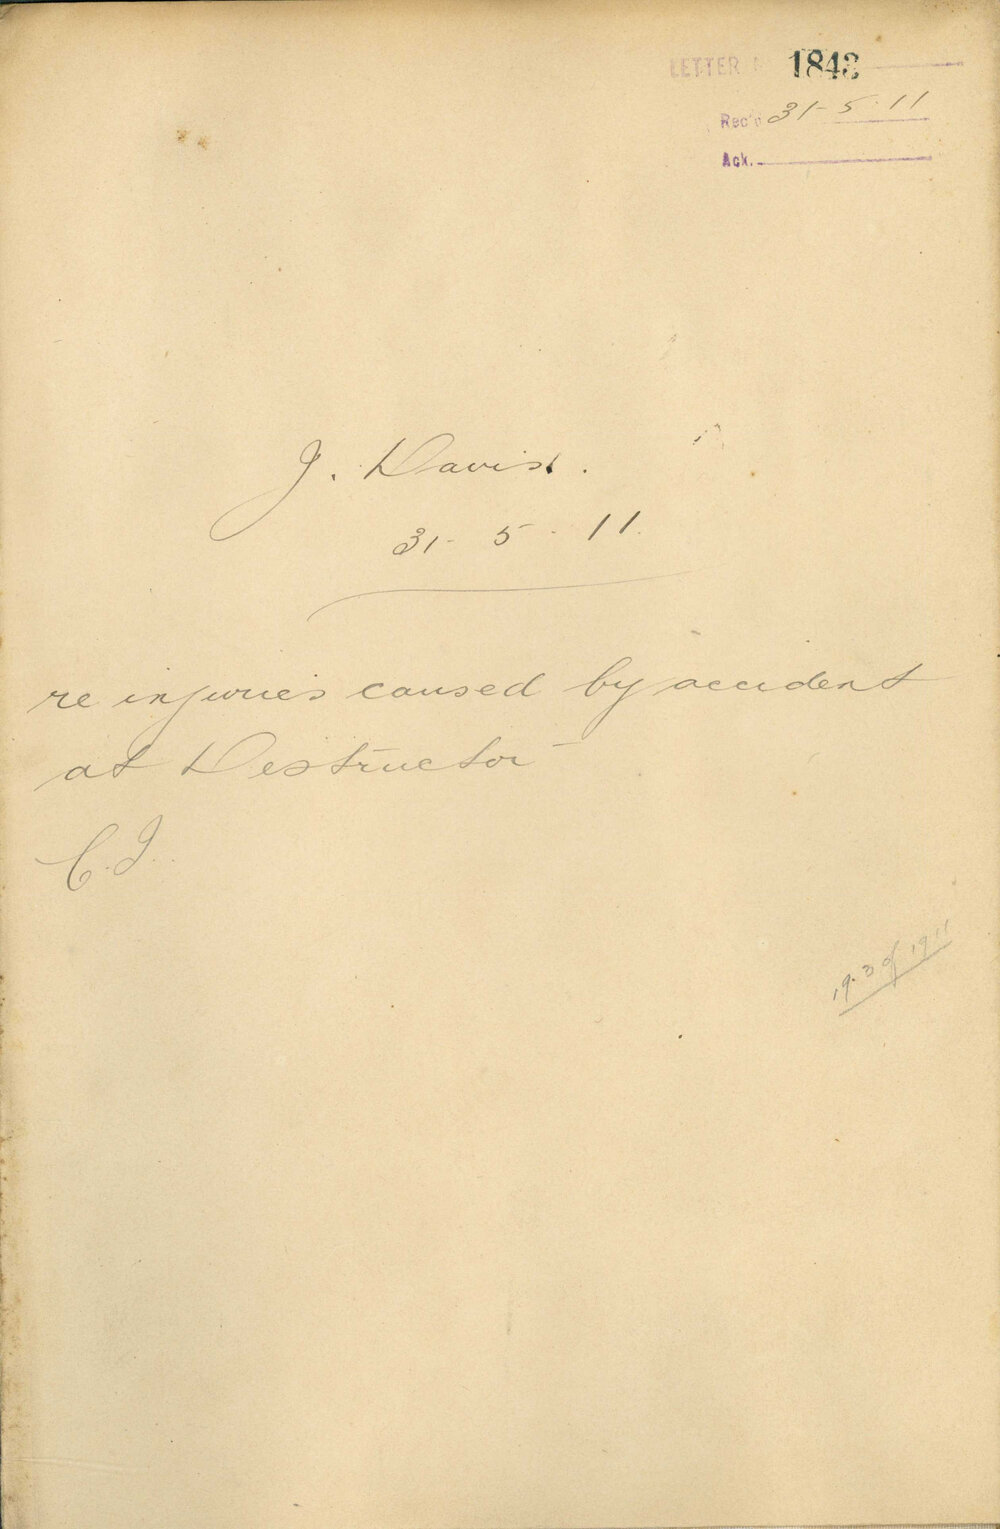 LETTER 1843
Rec'd 31-5-11
Ack.
J. Davis.
31-5-11.
re injuries caused by accident
at Destructor
C.J.
193 of 1911